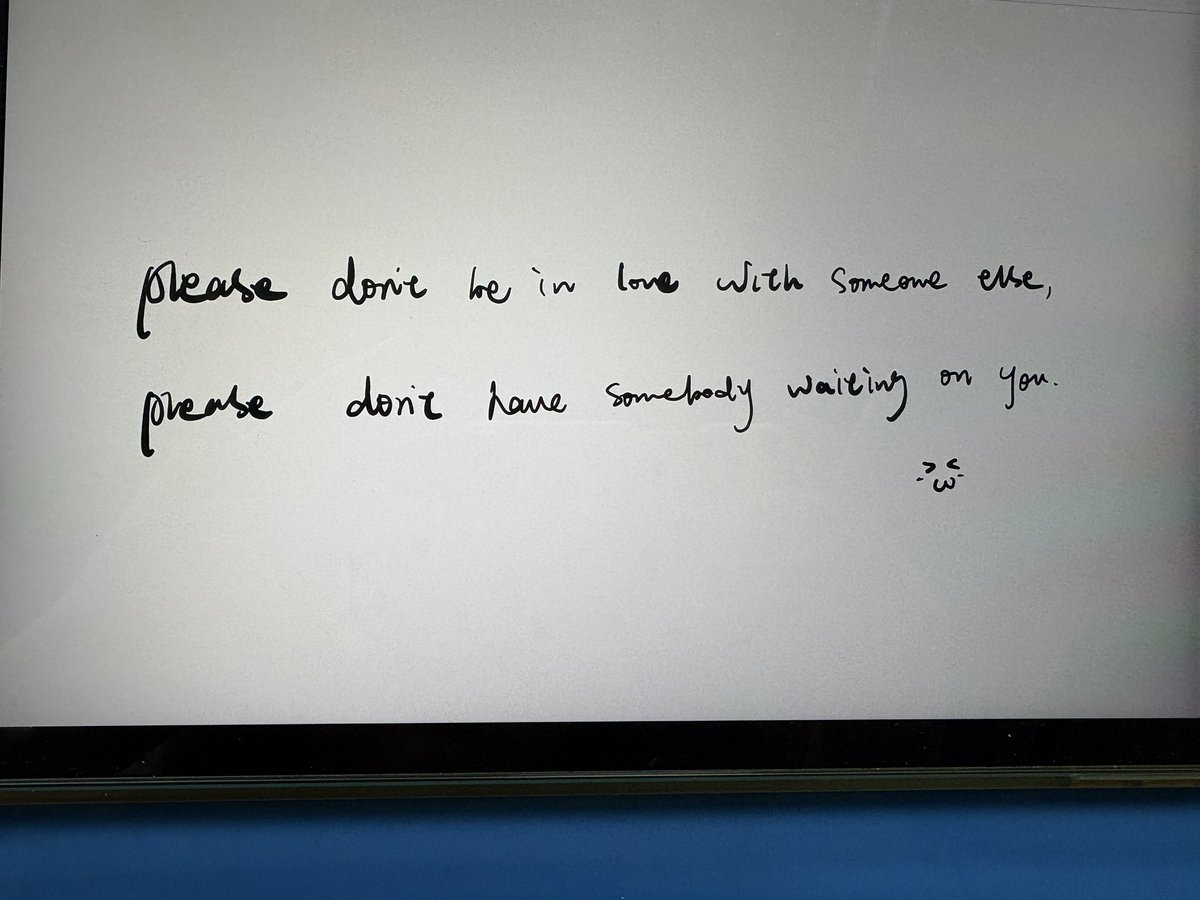 please don't be in love with someone else,
please don't have somebody waiting on you.